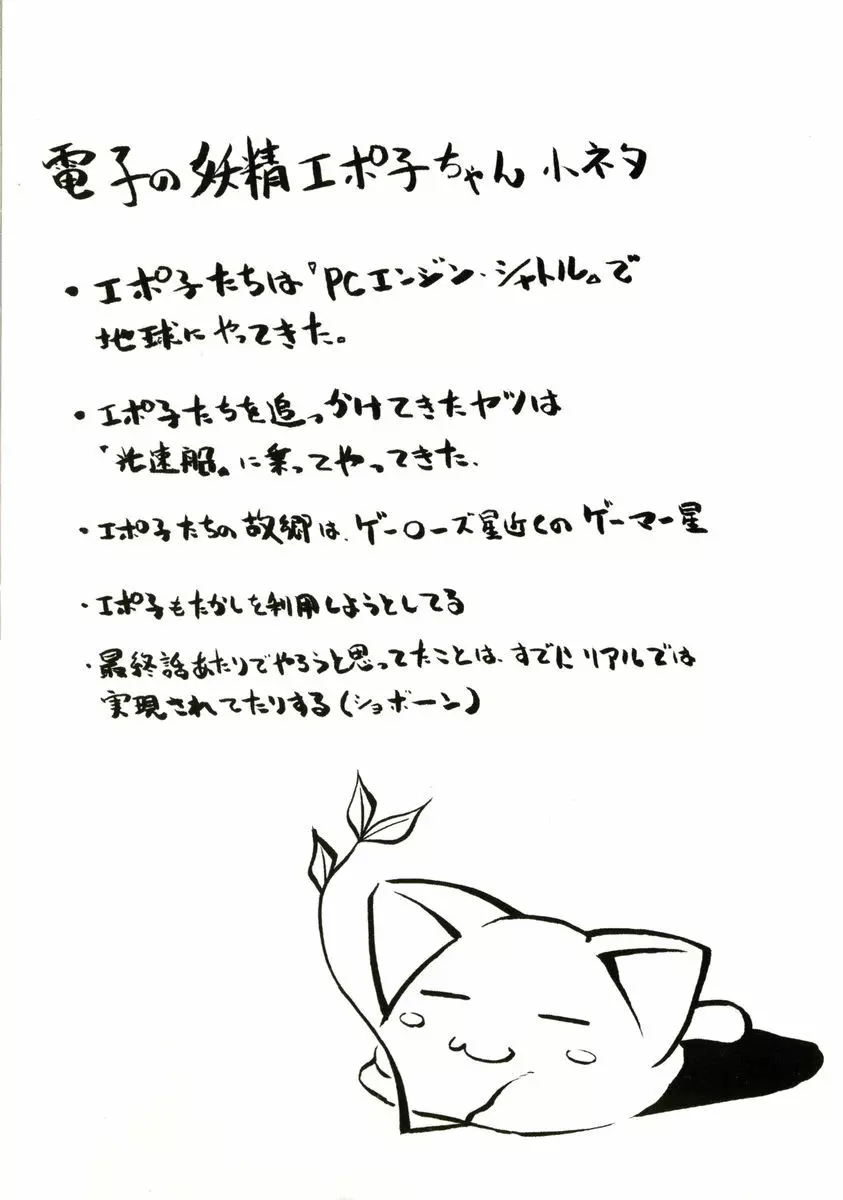 電子の妖精エポ子ちゃん 小ネタ
・エポ子たちは『PCエンジン・シャトル』で
地球にやってきた。
・エポ子たちを追っかけてきたヤツは
『光速船』に乗ってやってきた。
・エポ子たちの故郷は、ゲーローズ星近くのゲーマー星
・エポ子もたかしを利用しようとしてる
・最終話あたりでやろうと思ってたことは、すでにリアルでは
実現されてたりする(ショボーン)